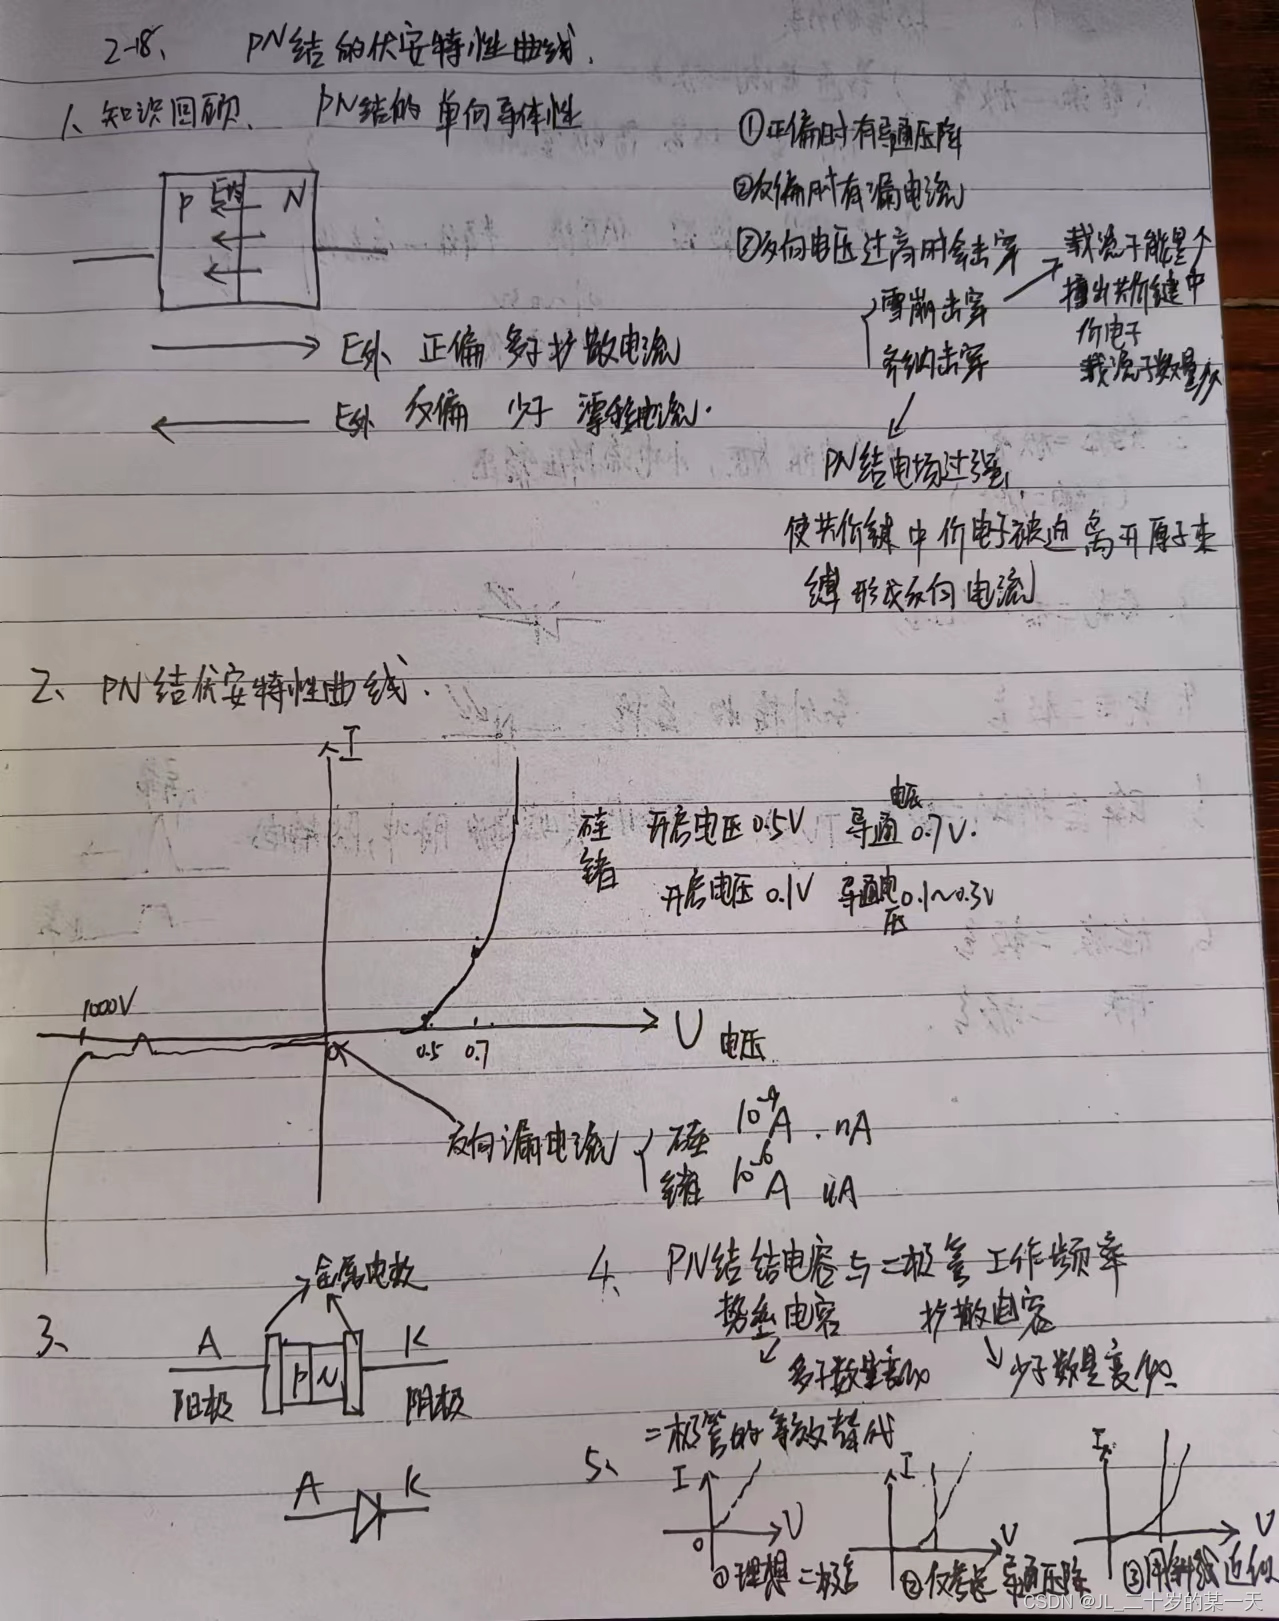 2-18、 PN结的伏安特性曲线.
1、知识回顾、 PN结的单向导体性
P E内 N
E外 正偏 多子扩散电流
E外 反偏 少子 漂移电流.
①正偏时有导通压降
②反偏时有漏电流
③反向电压过高时会击穿
雪崩击穿
齐纳击穿
载流子能量个
撞出共价键中
价电子
载流子数量
PN结电场过强,
使共价键中价电子被迫离开原子束
缚形成反向电流
2、PN结伏安特性曲线.
I
硅 开启电压0.5V 导通电压0.7V.
锗 开启电压0.1V 导通电压0.1~0.3V
1000V
0 0.5 0.7 U 电压
反向漏电流
硅 10⁻⁹A . nA
锗 10⁻⁶A uA
3、
金属电极
A P N K
阳极 阴极
A K
4、 PN结结电容与二极管工作频率
势垒电容 扩散电容
多子数量变化 少子数量变化
5、 二极管的等效替代
I U 0
①理想二极管
I U
②仅考虑导通压降
I U
③用斜线近似
CSDN @JL_二十岁的某一天